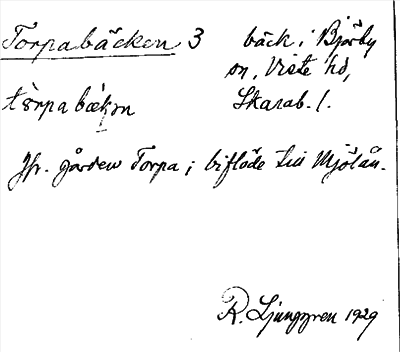 Torpabäcken 3 bäck i Björby
sn, Viste hd,
tòrpabækən Skarab. l.
Jfr. gården Torpa; biflöde till Mjölån.
R. Ljunggren 1929